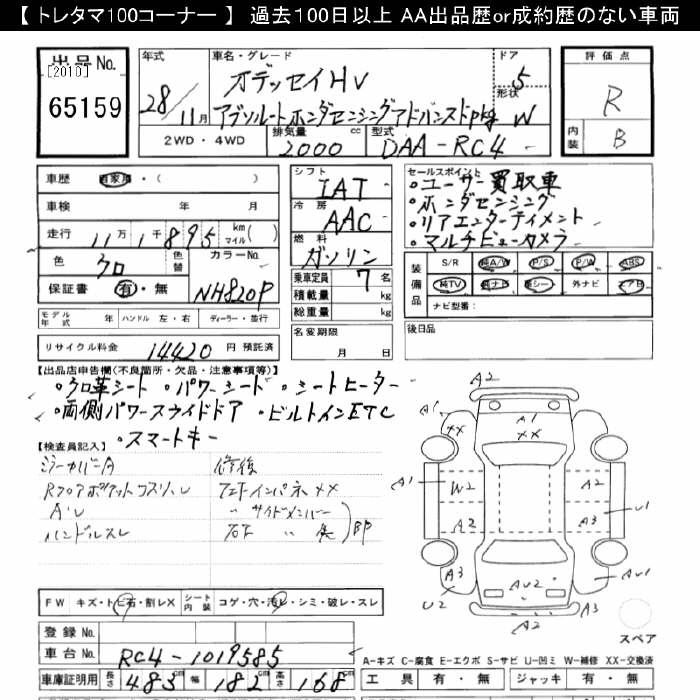 【 トレタマ100コーナー 】 過去100日以上 AA出品歴or成約歴のない車両
出品No.
[2010]
65159
年式
28/11月
車名・グレード
オデッセイHV
アブソルートホンダセンシングアドバンスドpkg
ドア
5
形状
W
2WD・4WD
排気量 cc
2000
型式
DAA-RC4
評価点
R
内装
B
車歴 自家用・( )
車検 年 月
走行 11万1千895 km マイル( )
色 クロ 色替
カラーNo.
NH820P
保証書 有・無
シフト
IAT
冷房
AAC
燃料
ガソリン
乗車定員 7 名
積載量 kg
総重量 kg
セールスポイント
・ユーザー買取車
・ホンダセンシング
・リアエンターテイメント
・マルチビューカメラ
装備品
S/R 純A/W P/S P/W ABS
純TV 純ナビ 革シート 外ナビ エアB
ナビ型番:
モデル年式 年 ハンドル 左・右 ディーラー・並行
リサイクル料金 14420 円 預託済
名変期限
月 日
後日品
【出品店申告欄(不良箇所・欠品・注意事項等)】
・クロ革シート ・パワーシート ・シートヒーター
・両側パワースライドドア ・ビルトインETC
・スマートキー
【検査員記入】
修復
ハンドルスレ
FW キズ・トビ石・割レX シート内装 コゲ・穴・汚レ・シミ・破レ・スレ
登録No.
車台No. RC4-1019585
車庫証明用 長さ 483 cm 幅 182 cm 高さ 168 cm
A2
A1
XX
A1
XX
A1
W2
A2
A2
A3
U1
A3
U2
AU2
A2
A3
AU1
スペア
A-キズ C-腐食 E-エクボ S-サビ U-凹ミ W-補修 XX-交換済
工具 有・無 ジャッキ 有・無